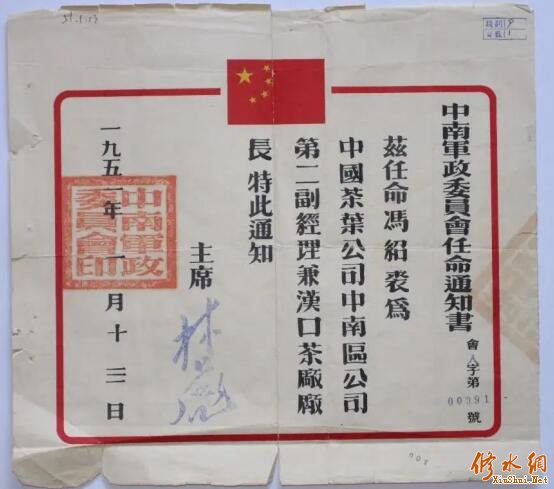 中南軍政委員會任命通知書
會人字第00091號
茲任命馮紹裘爲
中國茶葉公司中南區公司
第二副經理兼漢口茶廠廠
長 特此通知
主席
林彪
一九五一年一月十三日
中南軍政委員會印
51.1.13
修水網
XiuShui.Net